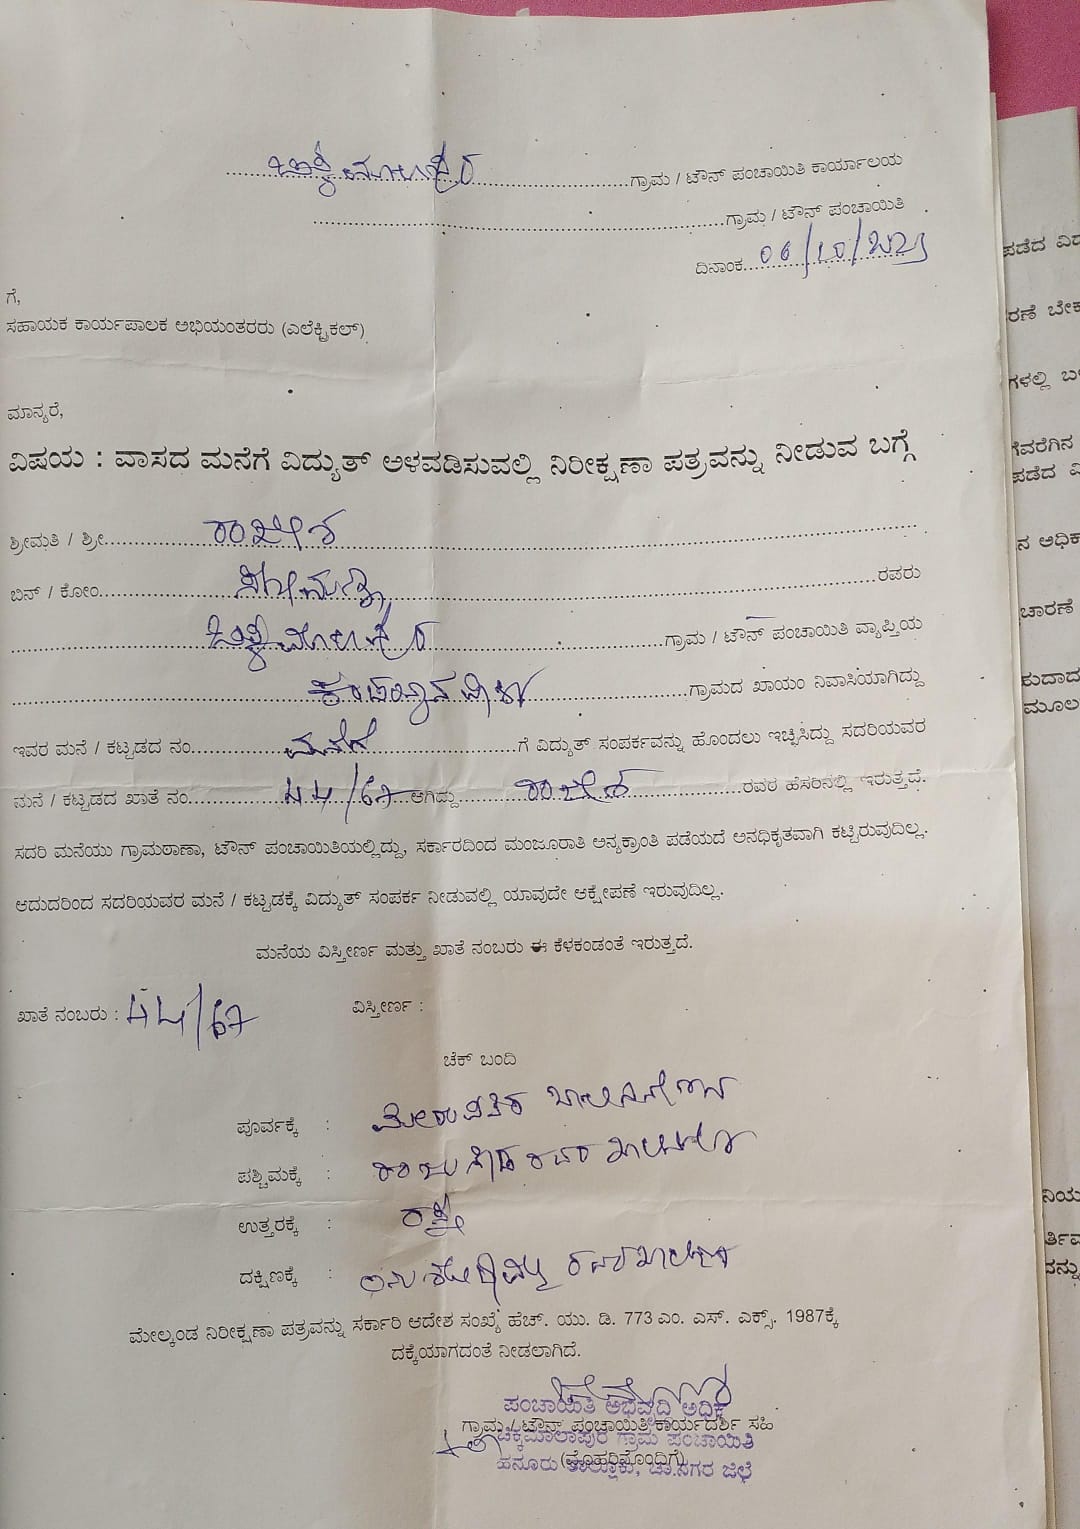 ಚಿಕ್ಕಮಾಲಾಪುರ ಗ್ರಾಮ / ಟೌನ್ ಪಂಚಾಯಿತಿ ಕಾರ್ಯಾಲಯ
ಗ್ರಾಮ / ಟೌನ್ ಪಂಚಾಯಿತಿ
ದಿನಾಂಕ 06/10/2023
ಗೆ,
ಸಹಾಯಕ ಕಾರ್ಯಪಾಲಕ ಅಭಿಯಂತರರು (ಎಲೆಕ್ಟ್ರಿಕಲ್)
ಮಾನ್ಯರೆ,
ವಿಷಯ : ವಾಸದ ಮನೆಗೆ ವಿದ್ಯುತ್ ಅಳವಡಿಸುವಲ್ಲಿ ನಿರೀಕ್ಷಣಾ ಪತ್ರವನ್ನು ನೀಡುವ ಬಗ್ಗೆ
ಶ್ರೀಮತಿ / ಶ್ರೀ ರಾಜೇಶ
ಬಿನ್ / ಕೋಂ ರವರು
ಚಿಕ್ಕಮಾಲಾಪುರ ಗ್ರಾಮ / ಟೌನ್ ಪಂಚಾಯಿತಿ ವ್ಯಾಪ್ತಿಯ
ಗ್ರಾಮದ ಖಾಯಂ ನಿವಾಸಿಯಾಗಿದ್ದು
ಇವರ ಮನೆ / ಕಟ್ಟಡದ ನಂ ಮನೆಗೆ ಗೆ ವಿದ್ಯುತ್ ಸಂಪರ್ಕವನ್ನು ಹೊಂದಲು ಇಚ್ಛಿಸಿದ್ದು ಸದರಿಯವರ
ಮನೆ / ಕಟ್ಟಡದ ಖಾತೆ ನಂ 44/67 ಆಗಿದ್ದು ರಾಜೇಶ ರವರ ಹೆಸರಿನಲ್ಲಿ ಇರುತ್ತದೆ.
ಸದರಿ ಮನೆಯು ಗ್ರಾಮಠಾಣಾ, ಟೌನ್ ಪಂಚಾಯಿತಿಯಲ್ಲಿದ್ದು, ಸರ್ಕಾರದಿಂದ ಮಂಜೂರಾತಿ ಅನ್ಯಕ್ರಾಂತಿ ಪಡೆಯದೆ ಅನಧಿಕೃತವಾಗಿ ಕಟ್ಟಿರುವುದಿಲ್ಲ.
ಆದುದರಿಂದ ಸದರಿಯವರ ಮನೆ / ಕಟ್ಟಡಕ್ಕೆ ವಿದ್ಯುತ್ ಸಂಪರ್ಕ ನೀಡುವಲ್ಲಿ ಯಾವುದೇ ಆಕ್ಷೇಪಣೆ ಇರುವುದಿಲ್ಲ.
ಮನೆಯ ವಿಸ್ತೀರ್ಣ ಮತ್ತು ಖಾತೆ ನಂಬರು ಈ ಕೆಳಕಂಡಂತೆ ಇರುತ್ತದೆ.
ಖಾತೆ ನಂಬರು : 44/67 ವಿಸ್ತೀರ್ಣ :
ಚೆಕ್ ಬಂದಿ
ಪೂರ್ವಕ್ಕೆ :
ಪಶ್ಚಿಮಕ್ಕೆ :
ಉತ್ತರಕ್ಕೆ : ರಸ್ತೆ
ದಕ್ಷಿಣಕ್ಕೆ :
ಮೇಲ್ಕಂಡ ನಿರೀಕ್ಷಣಾ ಪತ್ರವನ್ನು ಸರ್ಕಾರಿ ಆದೇಶ ಸಂಖ್ಯೆ ಹೆಚ್. ಯು. ಡಿ. 773 ಎಂ. ಎಸ್. ಎಕ್ಸ್. 1987ಕ್ಕೆ
ದಕ್ಕೆಯಾಗದಂತೆ ನೀಡಲಾಗಿದೆ.
ಗ್ರಾಮ / ಟೌನ್ ಪಂಚಾಯಿತಿ ಕಾರ್ಯದರ್ಶಿ ಸಹಿ
ಚಿಕ್ಕಮಾಲಾಪುರ ಗ್ರಾಮ ಪಂಚಾಯಿತಿ
(ಮೊಹರಿನೊಂದಿಗೆ)
ಹನೂರು ತಾಲ್ಲೂಕು, ಚಾ.ನಗರ ಜಿಲ್ಲೆ